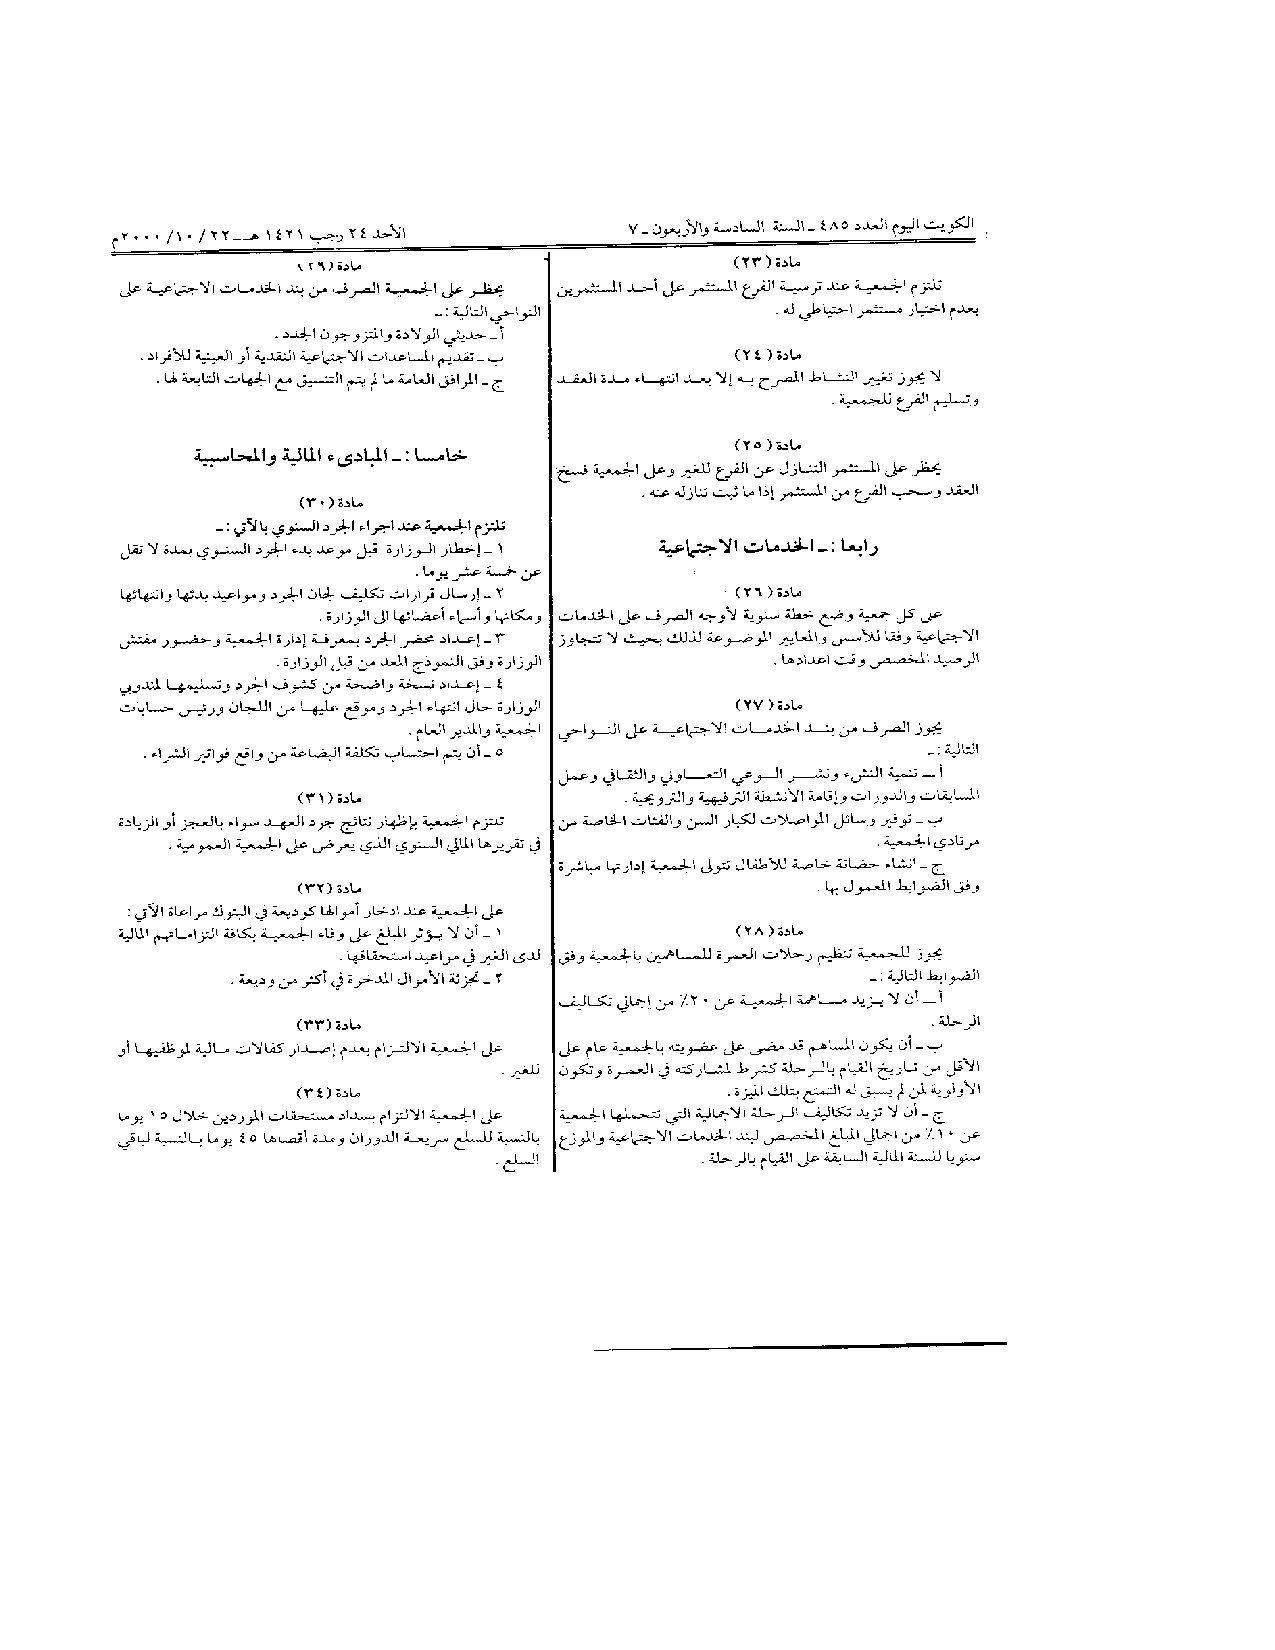 الكويت اليوم العدد ٤٨٥ ـ السنة السادسة والأربعون ـ ٧
الأحد ٢٤ رجب ١٤٢١ هـ ـ ٢٢ / ١٠ / ٢٠٠٠م
مادة (٢٣)
تلتزم الجمعية عند ترسية الفرع المستثمر على أحد المستثمرين
بعدم اختيار مستثمر احتياطي له .
مادة (٢٤)
لا يجوز تغيير النشاط المصرح به إلا بعد انتهاء مدة العقد
وتسليم الفرع للجمعية .
مادة (٢٥)
يحظر على المستثمر التنازل عن الفرع للغير وعلى الجمعية فسخ
العقد وسحب الفرع من المستثمر إذا ما ثبت تنازله عنه .
رابعا : ـ الخدمات الاجتماعية
مادة (٢٦)
على كل جمعية وضع خطة سنوية لأوجه الصرف على الخدمات
الاجتماعية وفقا للأسس والمعايير الموضوعة لذلك بحيث لا تتجاوز
الرصيد المخصص وقت اعدادها .
مادة (٢٧)
يجوز الصرف من بند الخدمات الاجتماعية على النواحي
التالية : ـ
أ ـ تنمية النشء ونشر الوعي التعاوني والثقافي وعمل
المسابقات والدورات وإقامة الأنشطة الترفيهية والترويحية .
ب ـ توفير وسائل المواصلات لكبار السن والفئات الخاصة من
مرتادي الجمعية .
ج ـ انشاء حضانة خاصة للأطفال تتولى الجمعية إدارتها مباشرة
وفق الضوابط المعمول بها .
مادة (٢٨)
يجوز للجمعية تنظيم رحلات العمرة للمساهمين بالجمعية وفق
الضوابط التالية : ـ
أ ـ أن لا يزيد مساهمة الجمعية عن ٢٠٪ من اجمالي تكاليف
الرحلة .
ب ـ أن يكون المساهم قد مضى على عضويته بالجمعية عام على
الأقل من تاريخ القيام بالرحلة كشرط لمشاركته في العمرة وتكون
الأولوية لمن لم يسبق له التمتع بتلك الميزة .
ج ـ أن لا تزيد تكاليف الرحلة الاجمالية التي تتحملها الجمعية
عن ١٠٪ من اجمالي المبلغ المخصص لبند الخدمات الاجتماعية والموزع
سنويا لنسنة المالية السابقة على القيام بالرحلة .
مادة (٢٩)
يحظر على الجمعية الصرف من بند الخدمات الاجتماعية على
النواحي التالية : ـ
أ ـ حديثي الولادة والمتزوجون الجدد .
ب ـ تقديم المساعدات الاجتماعية النقدية أو العينية للأفراد .
ج ـ المرافق العامة ما لم يتم التنسيق مع الجهات التابعة لها .
خامسا : ـ المبادىء المالية والمحاسبية
مادة (٣٠)
تلتزم الجمعية عند اجراء الجرد السنوي بالآتي : ـ
١ ـ إخطار الوزارة قبل موعد بدء الجرد السنوي بمدة لا تقل
عن خمسة عشر يوما .
٢ ـ إرسال قرارات تكليف لجان الجرد ومواعيد بدئها وانتهائها
ومكانها وأسماء أعضائها الى الوزارة .
٣ ـ إعداد محضر الجرد بمعرفة إدارة الجمعية وحضور مفتش
الوزارة وفق النموذج المعد من قبل الوزارة .
٤ ـ إعداد نسخة واضحة من كشوف الجرد وتسليمها لمندوبي
الوزارة حال انتهاء الجرد وموقع عليها من اللجان ورئيس حسابات
الجمعية والمدير العام .
٥ ـ أن يتم احتساب تكلفة البضاعة من واقع فواتير الشراء .
مادة (٣١)
تلتزم الجمعية بإظهار نتائج جرد العهد سواء بالعجز أو الزيادة
في تقريرها المالي السنوي الذي يعرض على الجمعية العمومية .
مادة (٣٢)
على الجمعية عند ادخار أموالها كوديعة في البنوك مراعاة الآتي :
١ ـ أن لا يؤثر المبلغ على وفاء الجمعية بكافة التزاماتهم المالية
لدى الغير في مواعيد استحقاقها .
٢ ـ تجزئة الأموال المدخرة في أكثر من وديعة .
مادة (٣٣)
على الجمعية الالتزام بعدم إصدار كفالات مالية لموظفيها أو
للغير .
مادة (٣٤)
على الجمعية الالتزام بسداد مستحقات الموردين خلال ١٥ يوما
بالنسبة للسلع سريعة الدوران ومدة أقصاها ٤٥ يوما بالنسبة لباقي
السلع .